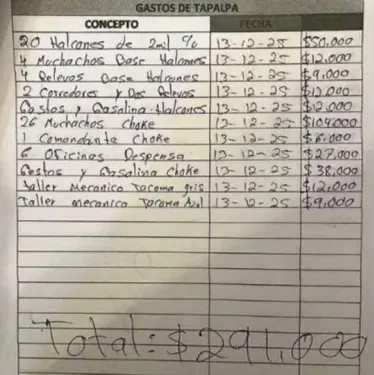 GASTOS DE TAPALPA
CONCEPTO FECHA
20 Halcones de 2mil % 13-12-25 $50,000
4 Muchachos Base Halcones 13-12-25 $12,000
4 Relevos Base Halcones 13-12-25 $9,000
2 Corredores y Dos Relevos 13-12-25 $12,000
Gastos y Gasolina Halcones 13-12-25 $12,000
26 Muchachos Choke 13-12-25 $104,000
1 Comandante Choke 13-12-25 $6,000
6 Oficinas Despensa 13-12-25 $27,000
Gastos y Gasolina Choke 13-12-25 $38,000
Taller Mecanico Tacoma gris 13-12-25 $12,000
Taller mecanico Tacoma Azul 13-12-25 $9,000
Total: $291,000